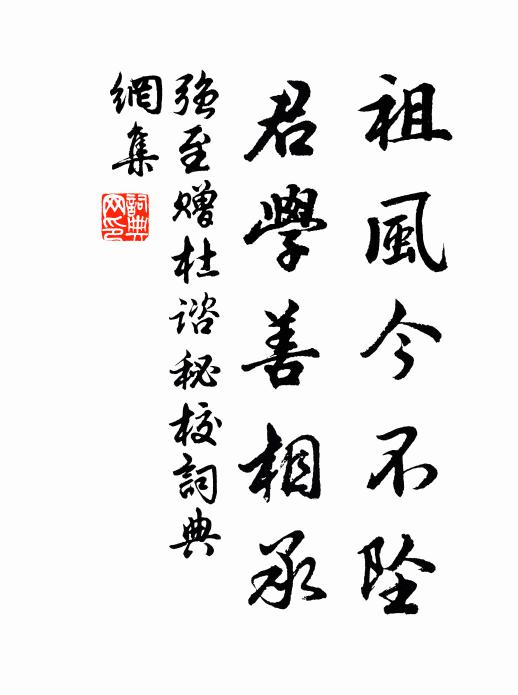 祖風今不墜
君學善相承
強至贈杜諮秘校詞典
網集
詞典
网印